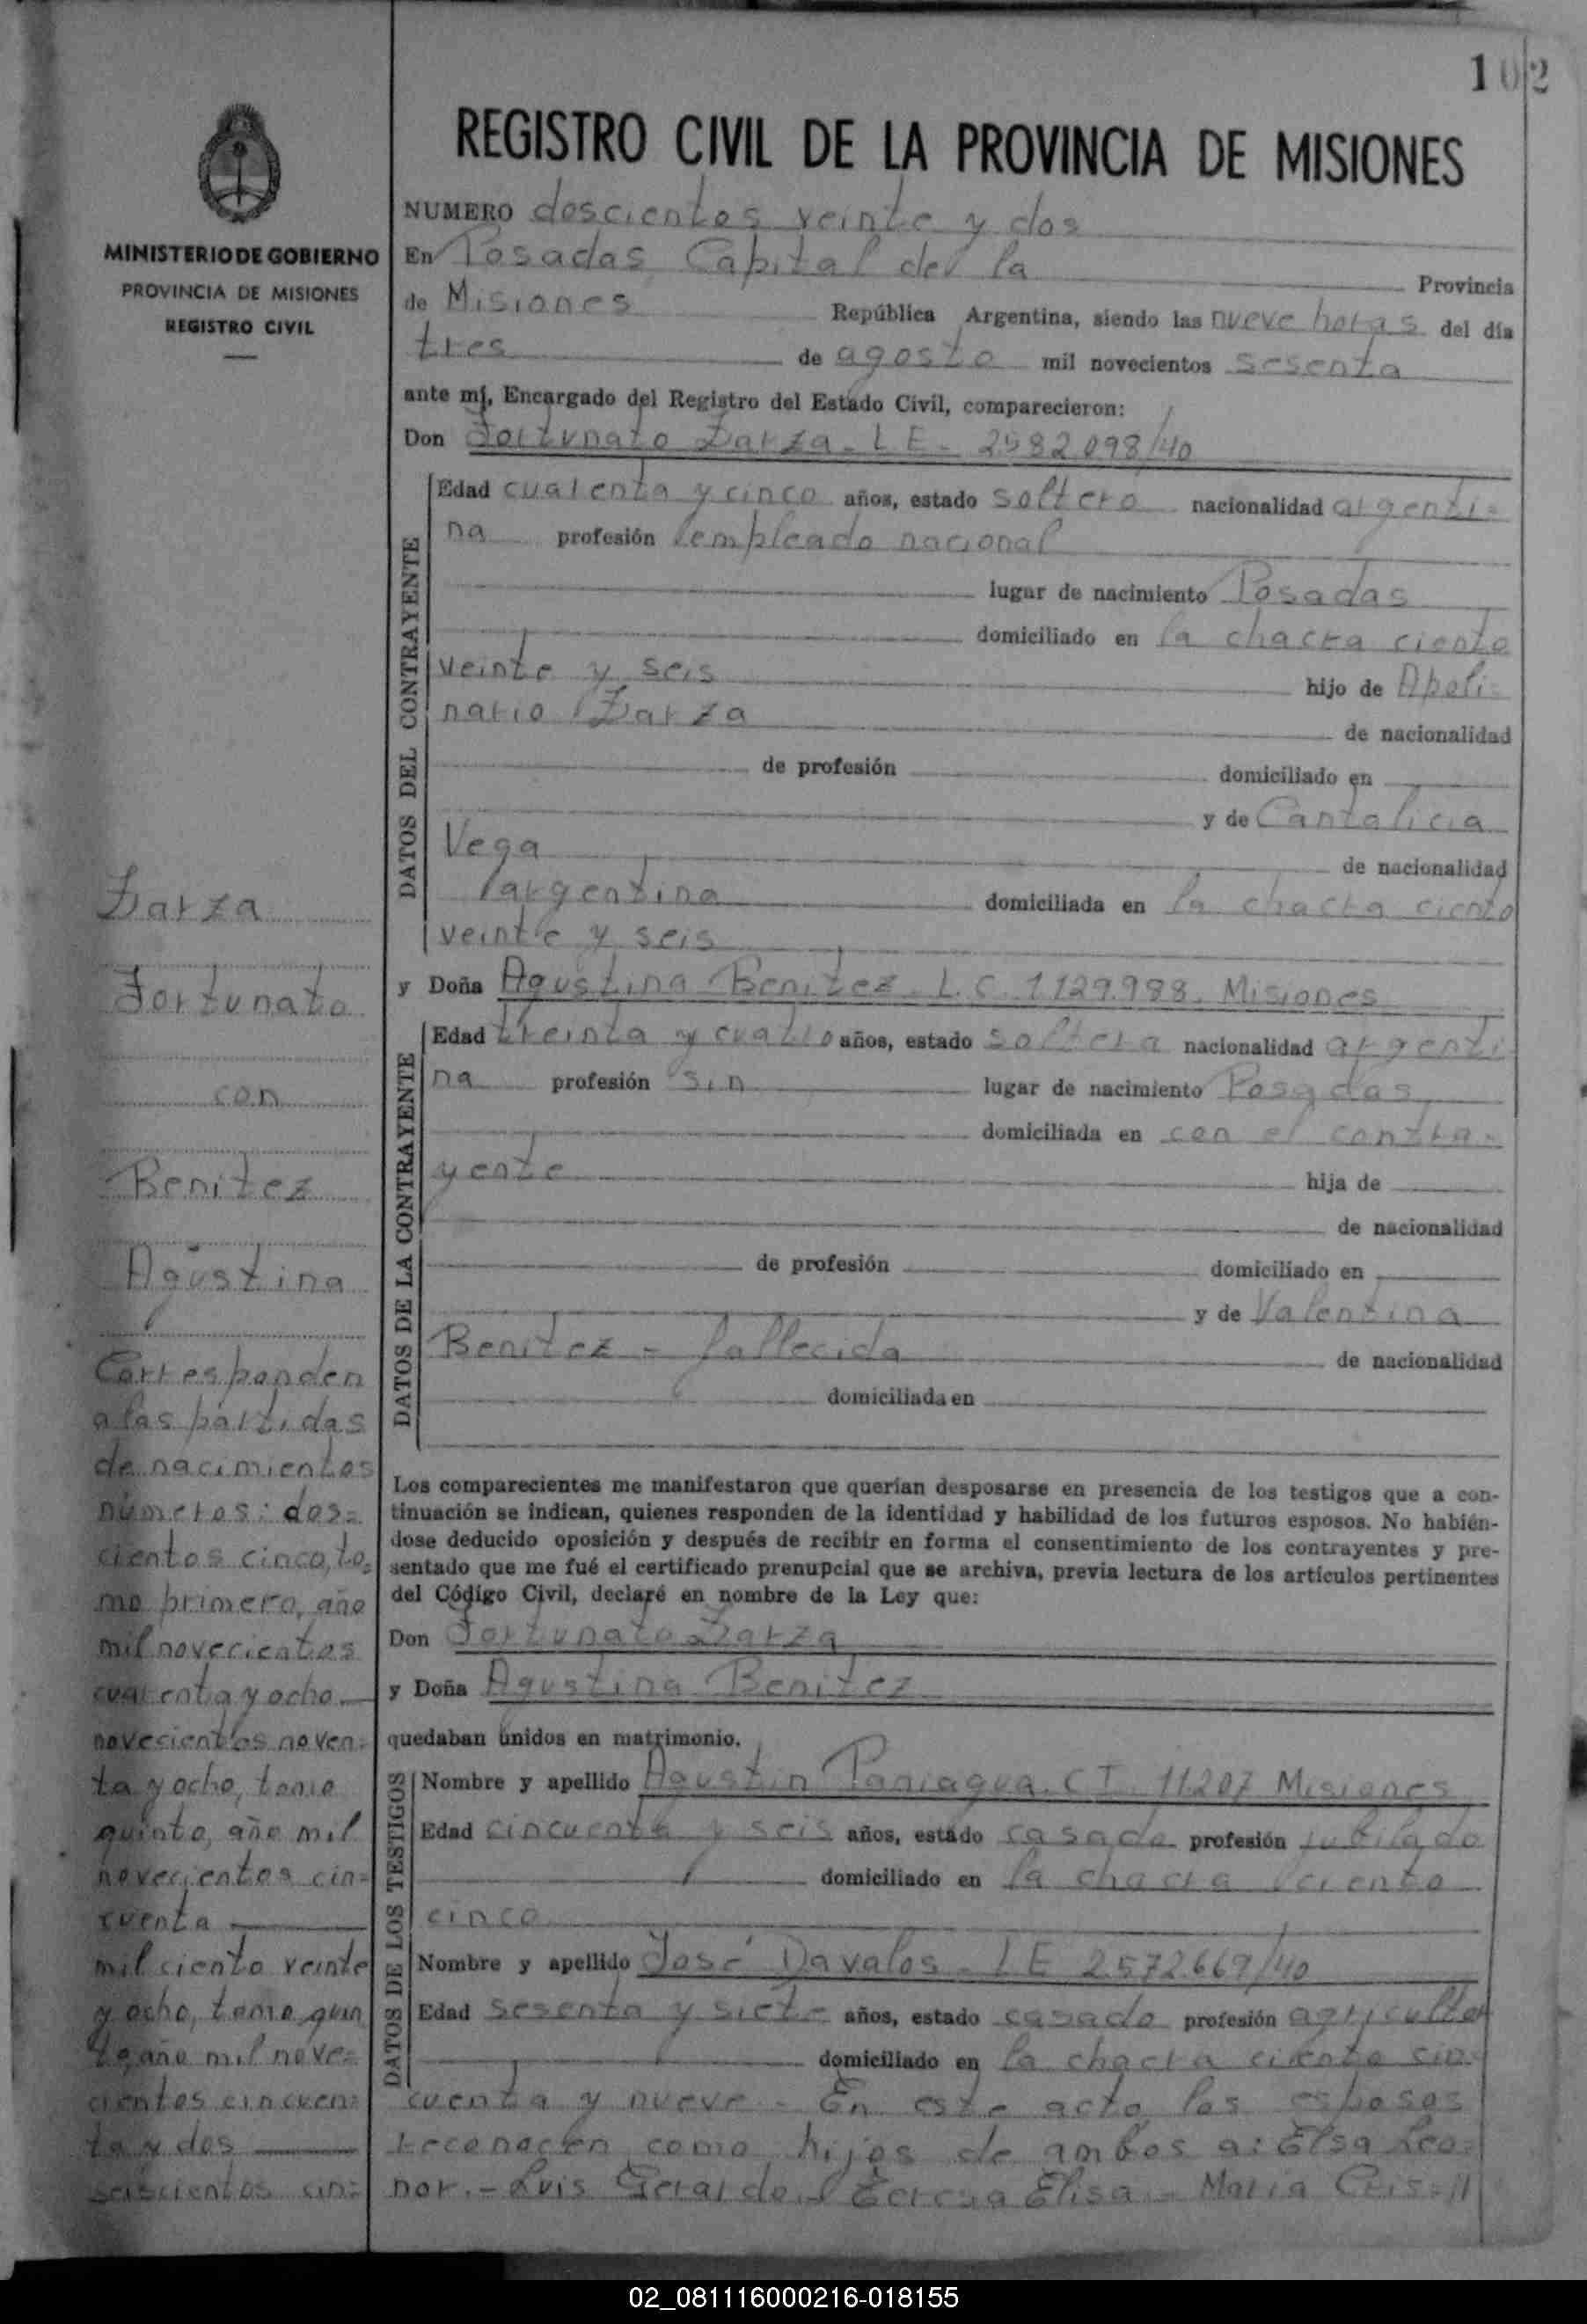 102
REGISTRO CIVIL DE LA PROVINCIA DE MISIONES
MINISTERIO DE GOBIERNO
PROVINCIA DE MISIONES
REGISTRO CIVIL
NUMERO doscientos veinte y dos
En Posadas Capital de la Provincia
de Misiones República Argentina, siendo las nueve horas del día
tres de agosto mil novecientos sesenta
ante mí, Encargado del Registro del Estado Civil, comparecieron:
Don Fortunato Zarza - L E - 2582098/40
DATOS DEL CONTRAYENTE
Edad cuarenta y cinco años, estado soltero nacionalidad argenti-
na profesión empleado nacional
lugar de nacimiento Posadas
domiciliado en la chacra ciento
veinte y seis hijo de Apoli-
nario Zarza de nacionalidad
de profesión domiciliado en
y de Cantalicia
Vega de nacionalidad
argentina domiciliada en la chacra ciento
veinte y seis
y Doña Agustina Benitez - L. C. 1129.988. Misiones
DATOS DE LA CONTRAYENTE
Edad treinta y cuatro años, estado soltera nacionalidad argenti-
na profesión sin lugar de nacimiento Posadas
domiciliada en con el contra-
yente hija de
de nacionalidad
de profesión domiciliado en
y de Valentina
Benitez - fallecida de nacionalidad
domiciliada en
Los comparecientes me manifestaron que querían desposarse en presencia de los testigos que a con-
tinuación se indican, quienes responden de la identidad y habilidad de los futuros esposos. No habién-
dose deducido oposición y después de recibir en forma el consentimiento de los contrayentes y pre-
sentado que me fué el certificado prenupcial que se archiva, previa lectura de los artículos pertinentes
del Código Civil, declaré en nombre de la Ley que:
Don Fortunato Zarza
y Doña Agustina Benitez
quedaban unidos en matrimonio.
DATOS DE LOS TESTIGOS
Nombre y apellido Agustin Paniagua. C I. 11.207 Misiones
Edad cincuenta y seis años, estado casado profesión jubilado
domiciliado en la chacra ciento
cinco
Nombre y apellido José Davalos - L E 2.572.669/40
Edad sesenta y siete años, estado casado profesión agricultor
domiciliado en la chacra ciento cin-
cuenta y nueve - En este acto los esposos
reconocen como hijos de ambos a: Elsa Leo-
nor. - Luis Gerardo - Teresa Elisa - Maria Cris-//
Zarza
Fortunato
con
Benitez
Agustina
Corresponden
a las partidas
de nacimientos
números: dos-
cientos cinco, to-
mo primero, año
mil novecientos
cuarenta y ocho
novecientos noven-
ta y ocho, tomo
quinto, año mil
novecientos cin-
cuenta
mil ciento veinte
y ocho, tomo quin
to año mil nove-
cientos cincuen-
ta y dos
seiscientos cin-
02_081116000216-018155